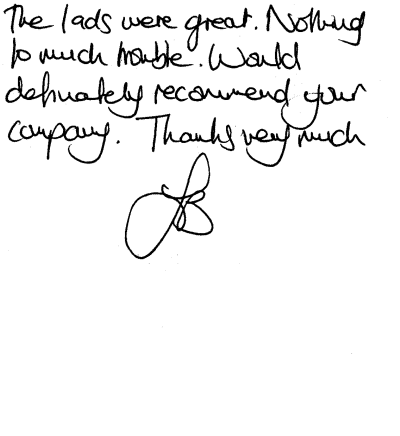 The lads were great. Nothing
to much trouble. Would
definately recommend your
company. Thanks very much